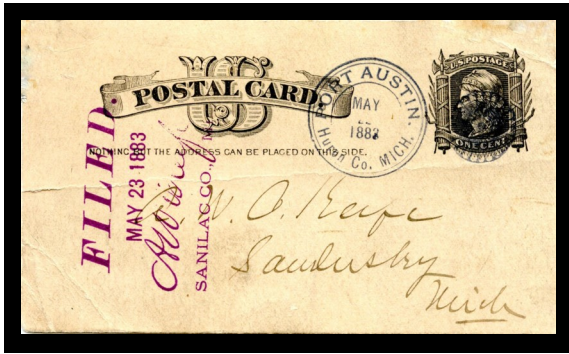 US
POSTAL CARD.
NOTHING BUT THE ADDRESS CAN BE PLACED ON THIS SIDE.
PORT AUSTIN,
MAY
1883
Huron Co. MICH.
U.S. POSTAGE
ONE CENT
FILED.
MAY 23 1883
SANILAC CO.
W. O. Keefe
Sandusky
Mich